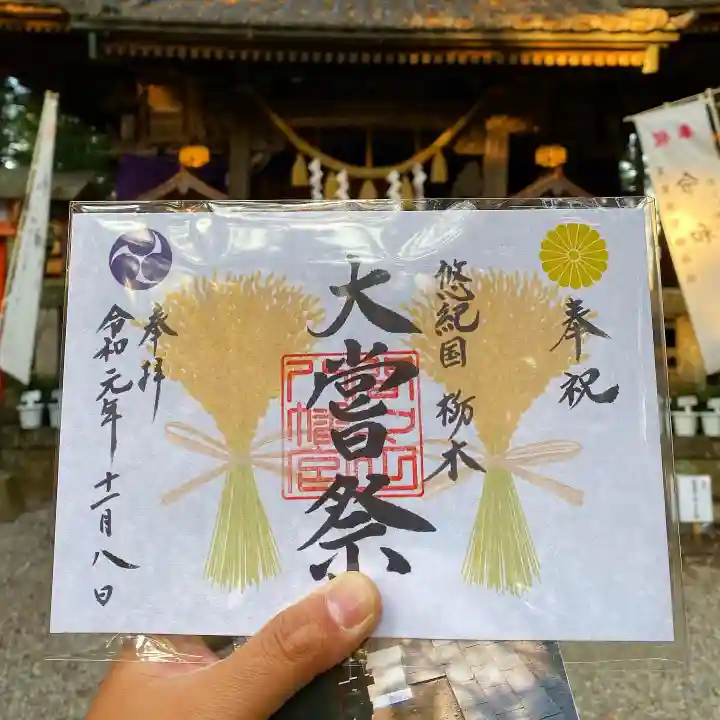 奉祝
悠紀国 栃木
大嘗祭
奉拝
令和元年 十一月八日